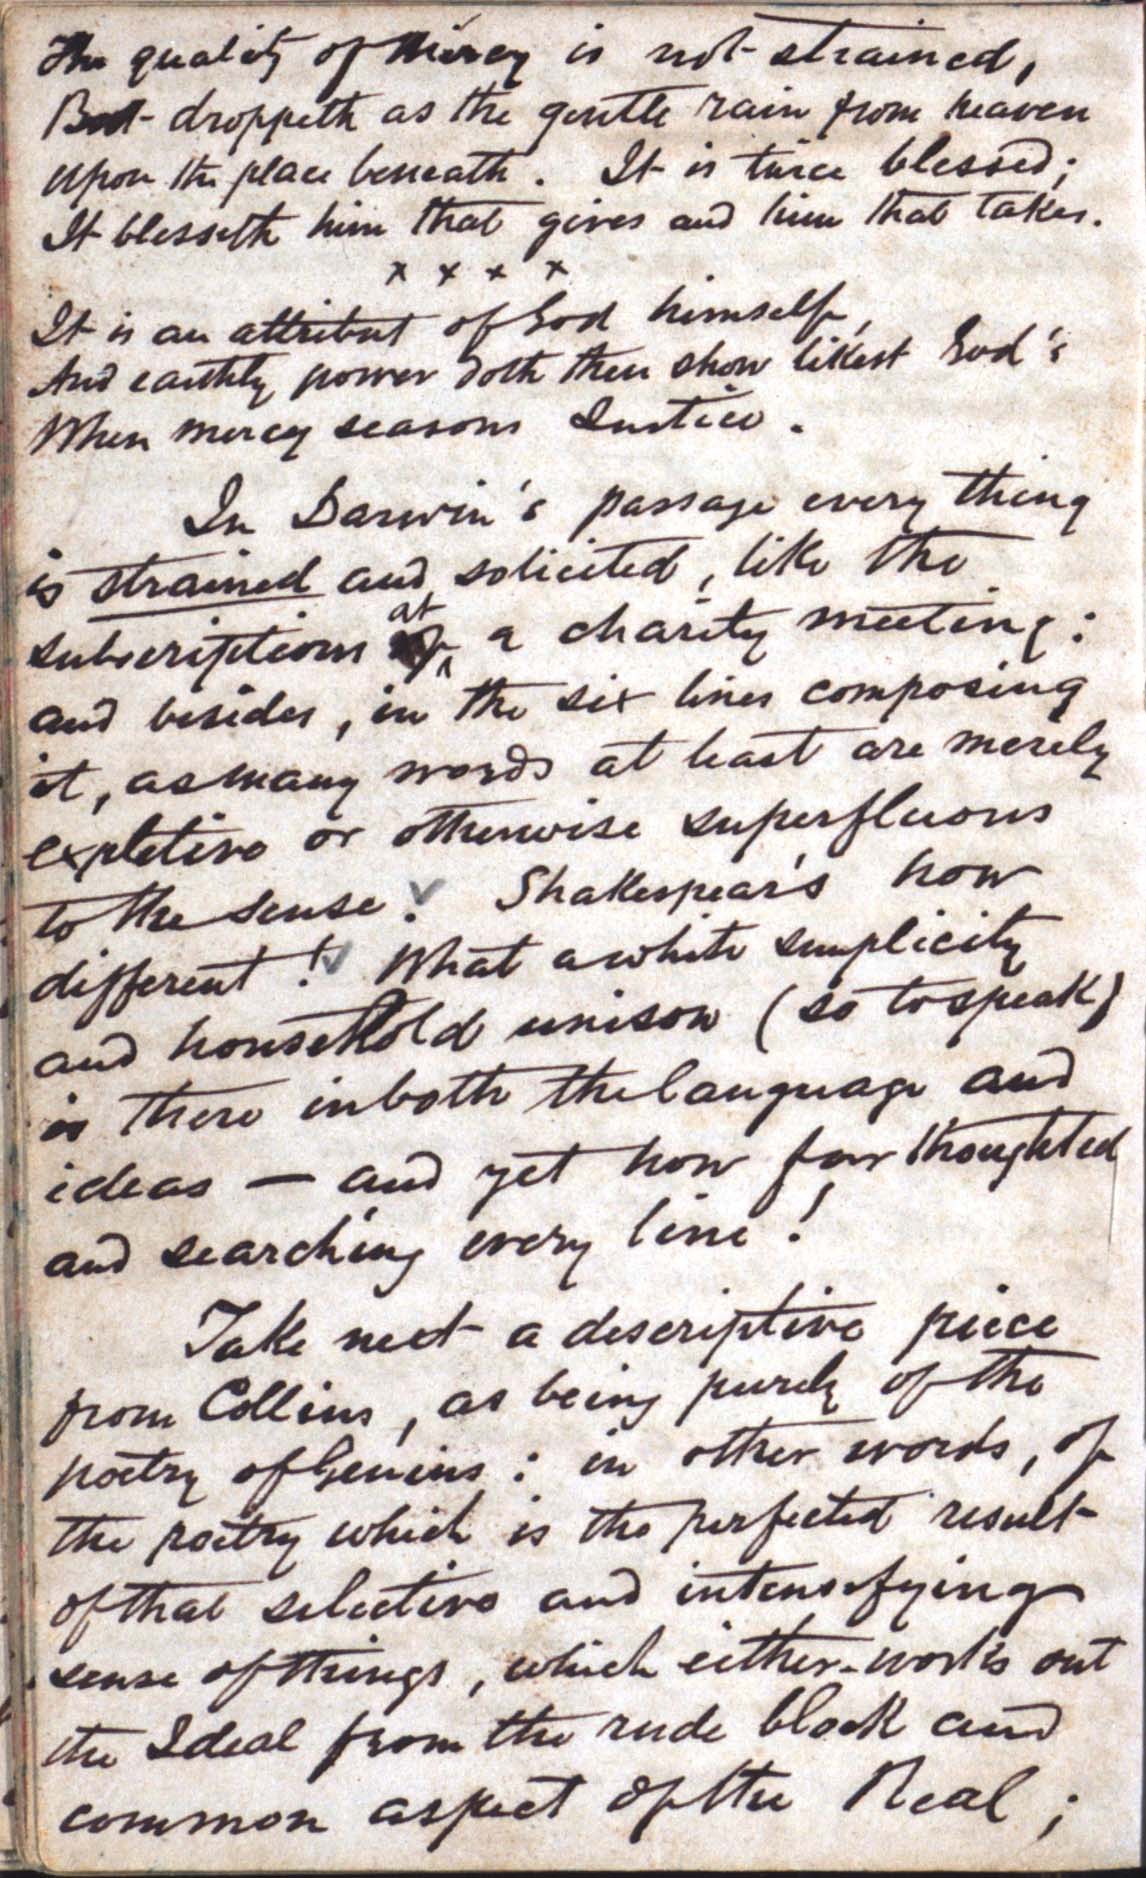 The quality of Mercy is not strained,
But droppeth as the gentle rain from heaven
upon the place beneath. It is twice blessed;
It blesseth him that gives and him that takes.
x x x x
It is an attribut of God himself,
And earthly power doth then show likest God's
When mercy seasons Justice.
In Darwin's passage every thing
is strained and solicited, like the
subscriptions at a charity meeting:
and besides, in the six lines composing
it, as many words at least are merely
expletive or otherwise superfluous
to the sense. Shakespear's how
different! What a white simplicity
and household unison (so to speak)
is there in both the language and
ideas — and yet how far thoughted
and searching every line!
Take next a descriptive piece
from Collins, as being purely of the
poetry of Genius: in other words, of
the poetry which is the perfected result
of that selective and intensifying
sense of things, which either works out
the Ideal from the rude block and
common aspect of the Real;